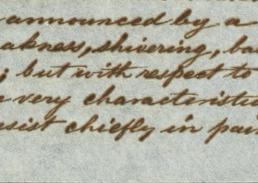 announced by a
akness, shivering, ba
; but with respect to
very characteristi
sist chiefly in pai